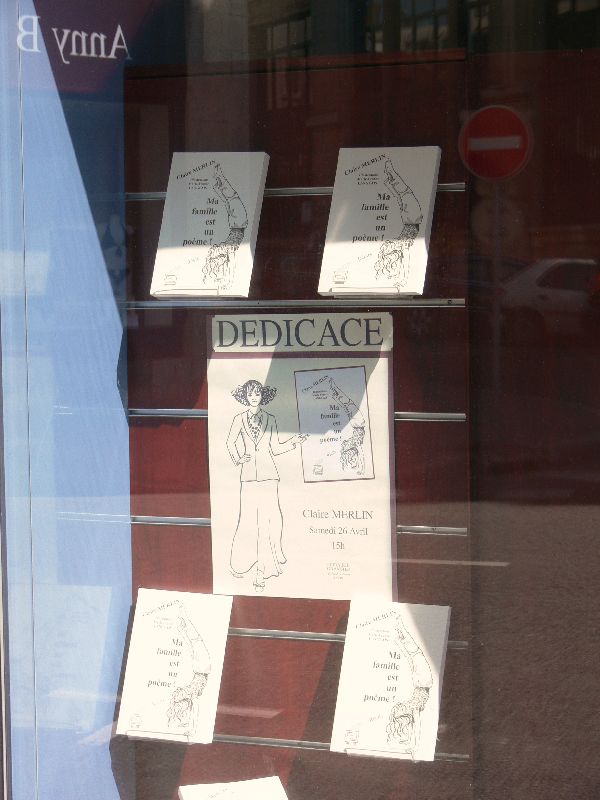 Anny B
Claire MERLIN
Ma
famille
est
un
poème !
Claire MERLIN
Ma
famille
est
un
poème !
DEDICACE
Claire MERLIN
Ma
famille
est
un
poème !
Claire MERLIN
Samedi 26 Avril
15h
Claire MERLIN
Ma
famille
est
un
poème !
Claire MERLIN
Ma
famille
est
un
poème !